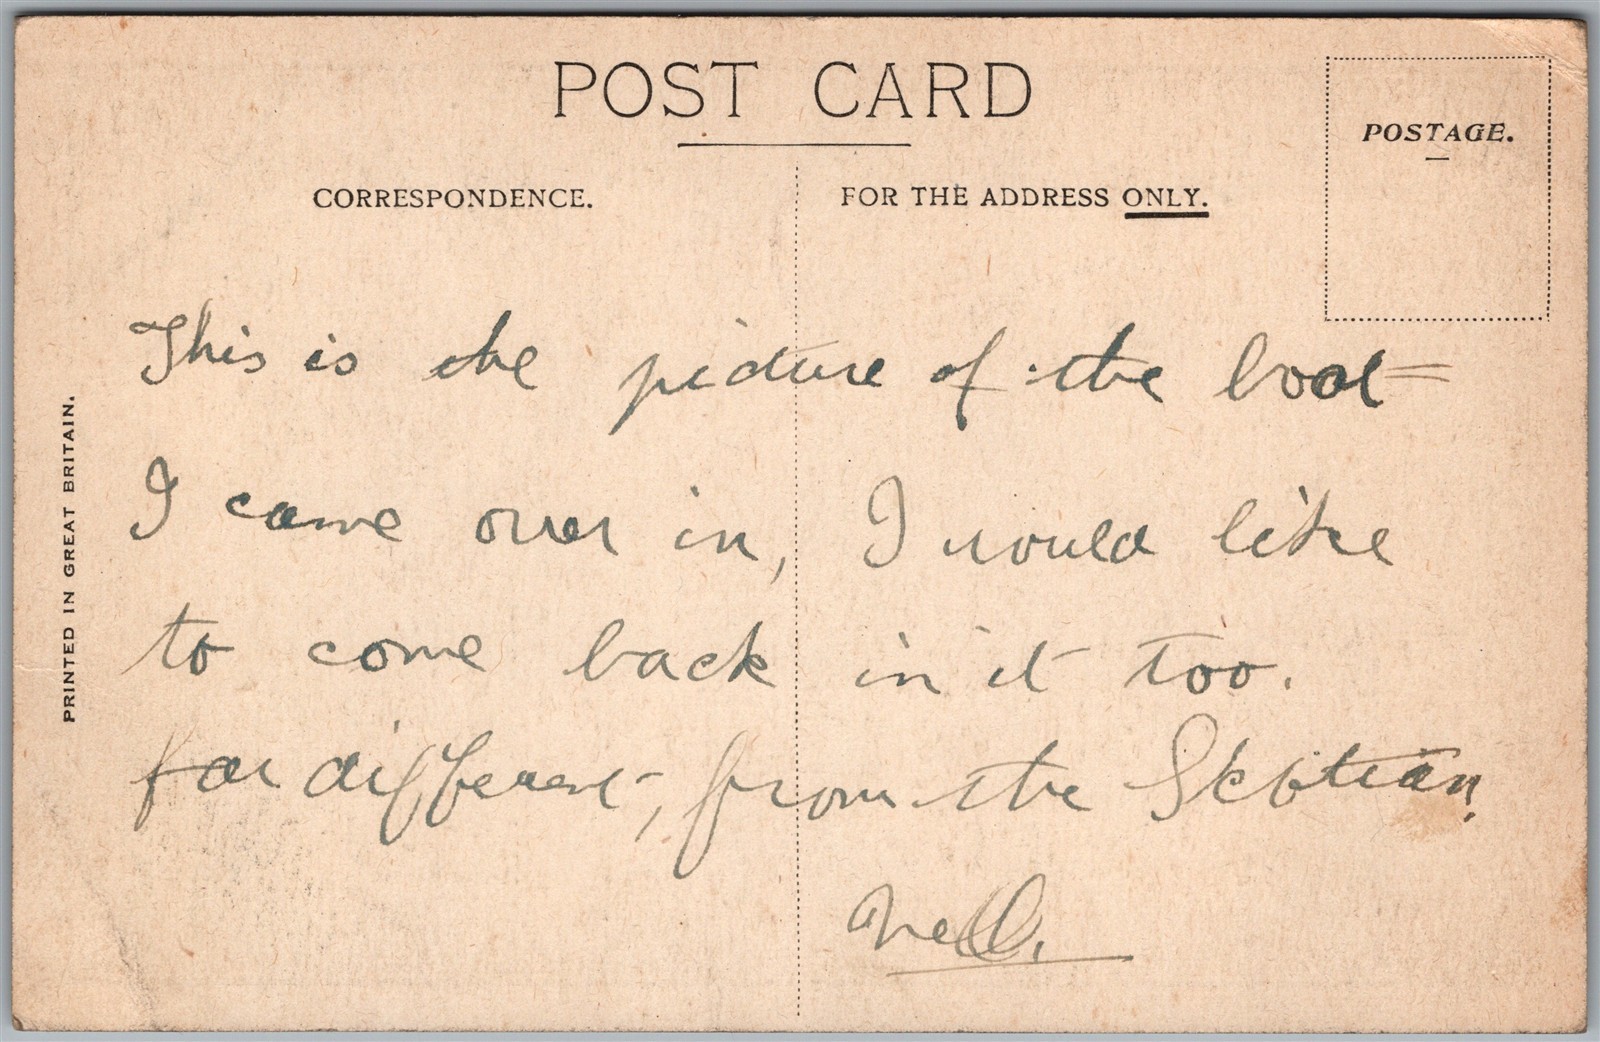 POST CARD
POSTAGE.
CORRESPONDENCE.
FOR THE ADDRESS ONLY.
PRINTED IN GREAT BRITAIN.
This is the picture of the boat
I came over in, I would like
to come back in it too.
far different, from the Skotian.
Nell.